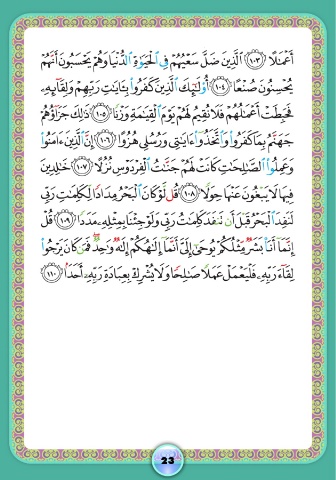 أَعْمَٰلًا ﴿١٠٣﴾ ٱلَّذِينَ ضَلَّ سَعْيُهُمْ فِى ٱلْحَيَوٰةِ ٱلدُّنْيَا وَهُمْ يَحْسَبُونَ أَنَّهُمْ
يُحْسِنُونَ صُنْعًا ﴿١٠٤﴾ أُو۟لَٰٓئِكَ ٱلَّذِينَ كَفَرُوا۟ بِـَٔايَٰتِ رَبِّهِمْ وَلِقَآئِهِۦ
فَحَبِطَتْ أَعْمَٰلُهُمْ فَلَا نُقِيمُ لَهُمْ يَوْمَ ٱلْقِيَٰمَةِ وَزْنًا ﴿١٠٥﴾ ذَٰلِكَ جَزَآؤُهُمْ
جَهَنَّمُ بِمَا كَفَرُوا۟ وَٱتَّخَذُوٓا۟ ءَايَٰتِى وَرُسُلِى هُزُوًا ﴿١٠٦﴾ إِنَّ ٱلَّذِينَ ءَامَنُوا۟
وَعَمِلُوا۟ ٱلصَّٰلِحَٰتِ كَانَتْ لَهُمْ جَنَّٰتُ ٱلْفِرْدَوْسِ نُزُلًا ﴿١٠٧﴾ خَٰلِدِينَ
فِيهَا لَا يَبْغُونَ عَنْهَا حِوَلًا ﴿١٠٨﴾ قُل لَّوْ كَانَ ٱلْبَحْرُ مِدَادًا لِّكَلِمَٰتِ رَبِّى
لَنَفِدَ ٱلْبَحْرُ قَبْلَ أَن تَنفَدَ كَلِمَٰتُ رَبِّى وَلَوْ جِئْنَا بِمِثْلِهِۦ مَدَدًا ﴿١٠٩﴾ قُلْ
إِنَّمَآ أَنَا۠ بَشَرٌ مِّثْلُكُمْ يُوحَىٰٓ إِلَىَّ أَنَّمَآ إِلَٰهُكُمْ إِلَٰهٌ وَٰحِدٌ فَمَن كَانَ يَرْجُوا۟
لِقَآءَ رَبِّهِۦ فَلْيَعْمَلْ عَمَلًا صَٰلِحًا وَلَا يُشْرِكْ بِعِبَادَةِ رَبِّهِۦٓ أَحَدًۢا ﴿١١٠﴾
23